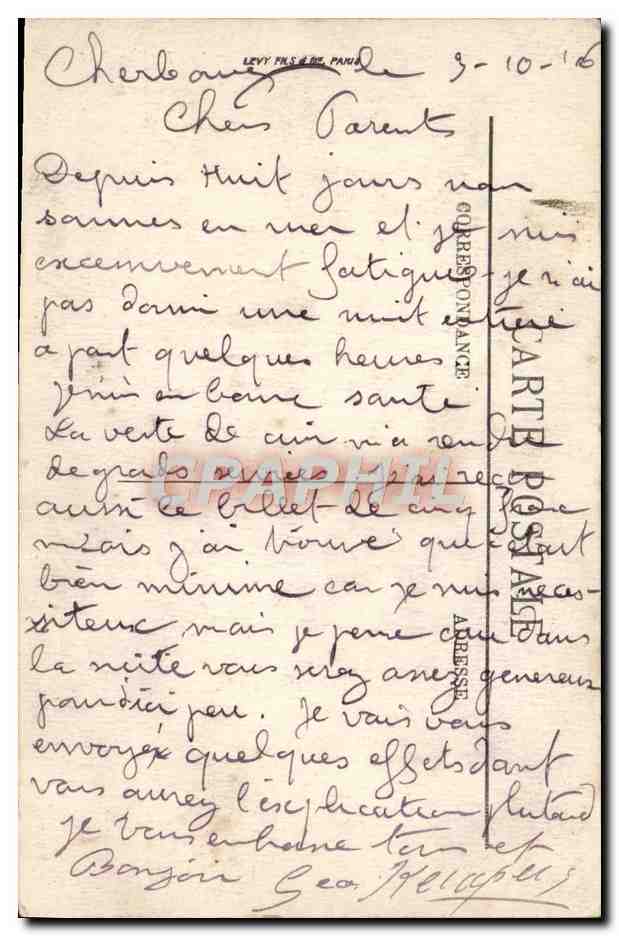 LEVY FILS & Cie, PARIS
Cherbourg le 3-10-16
Chers Parents
Depuis Huit jours nous
sommes en mer et je suis
excessivement fatigué - je n'ai
pas dormi une nuit entiere
a part quelques heures
je suis en bonne santé
La veste de cuir m'a rendu
de grands services - j'ai reçu
aussi le billet de cinq franc
mais j'ai trouvé que c'etait
bien minime car je suis neces-
siteux mais je pense que dans
la suite vous serez assez genereux
pour d'ici peu. Je vais vous
envoyer quelques effets dont
vous aurez l'explication plutard
je vous embrasse tous et
Bonjour Geo
CORRESPONDANCE
CARTE POSTALE
ADRESSE
CPAPHIL